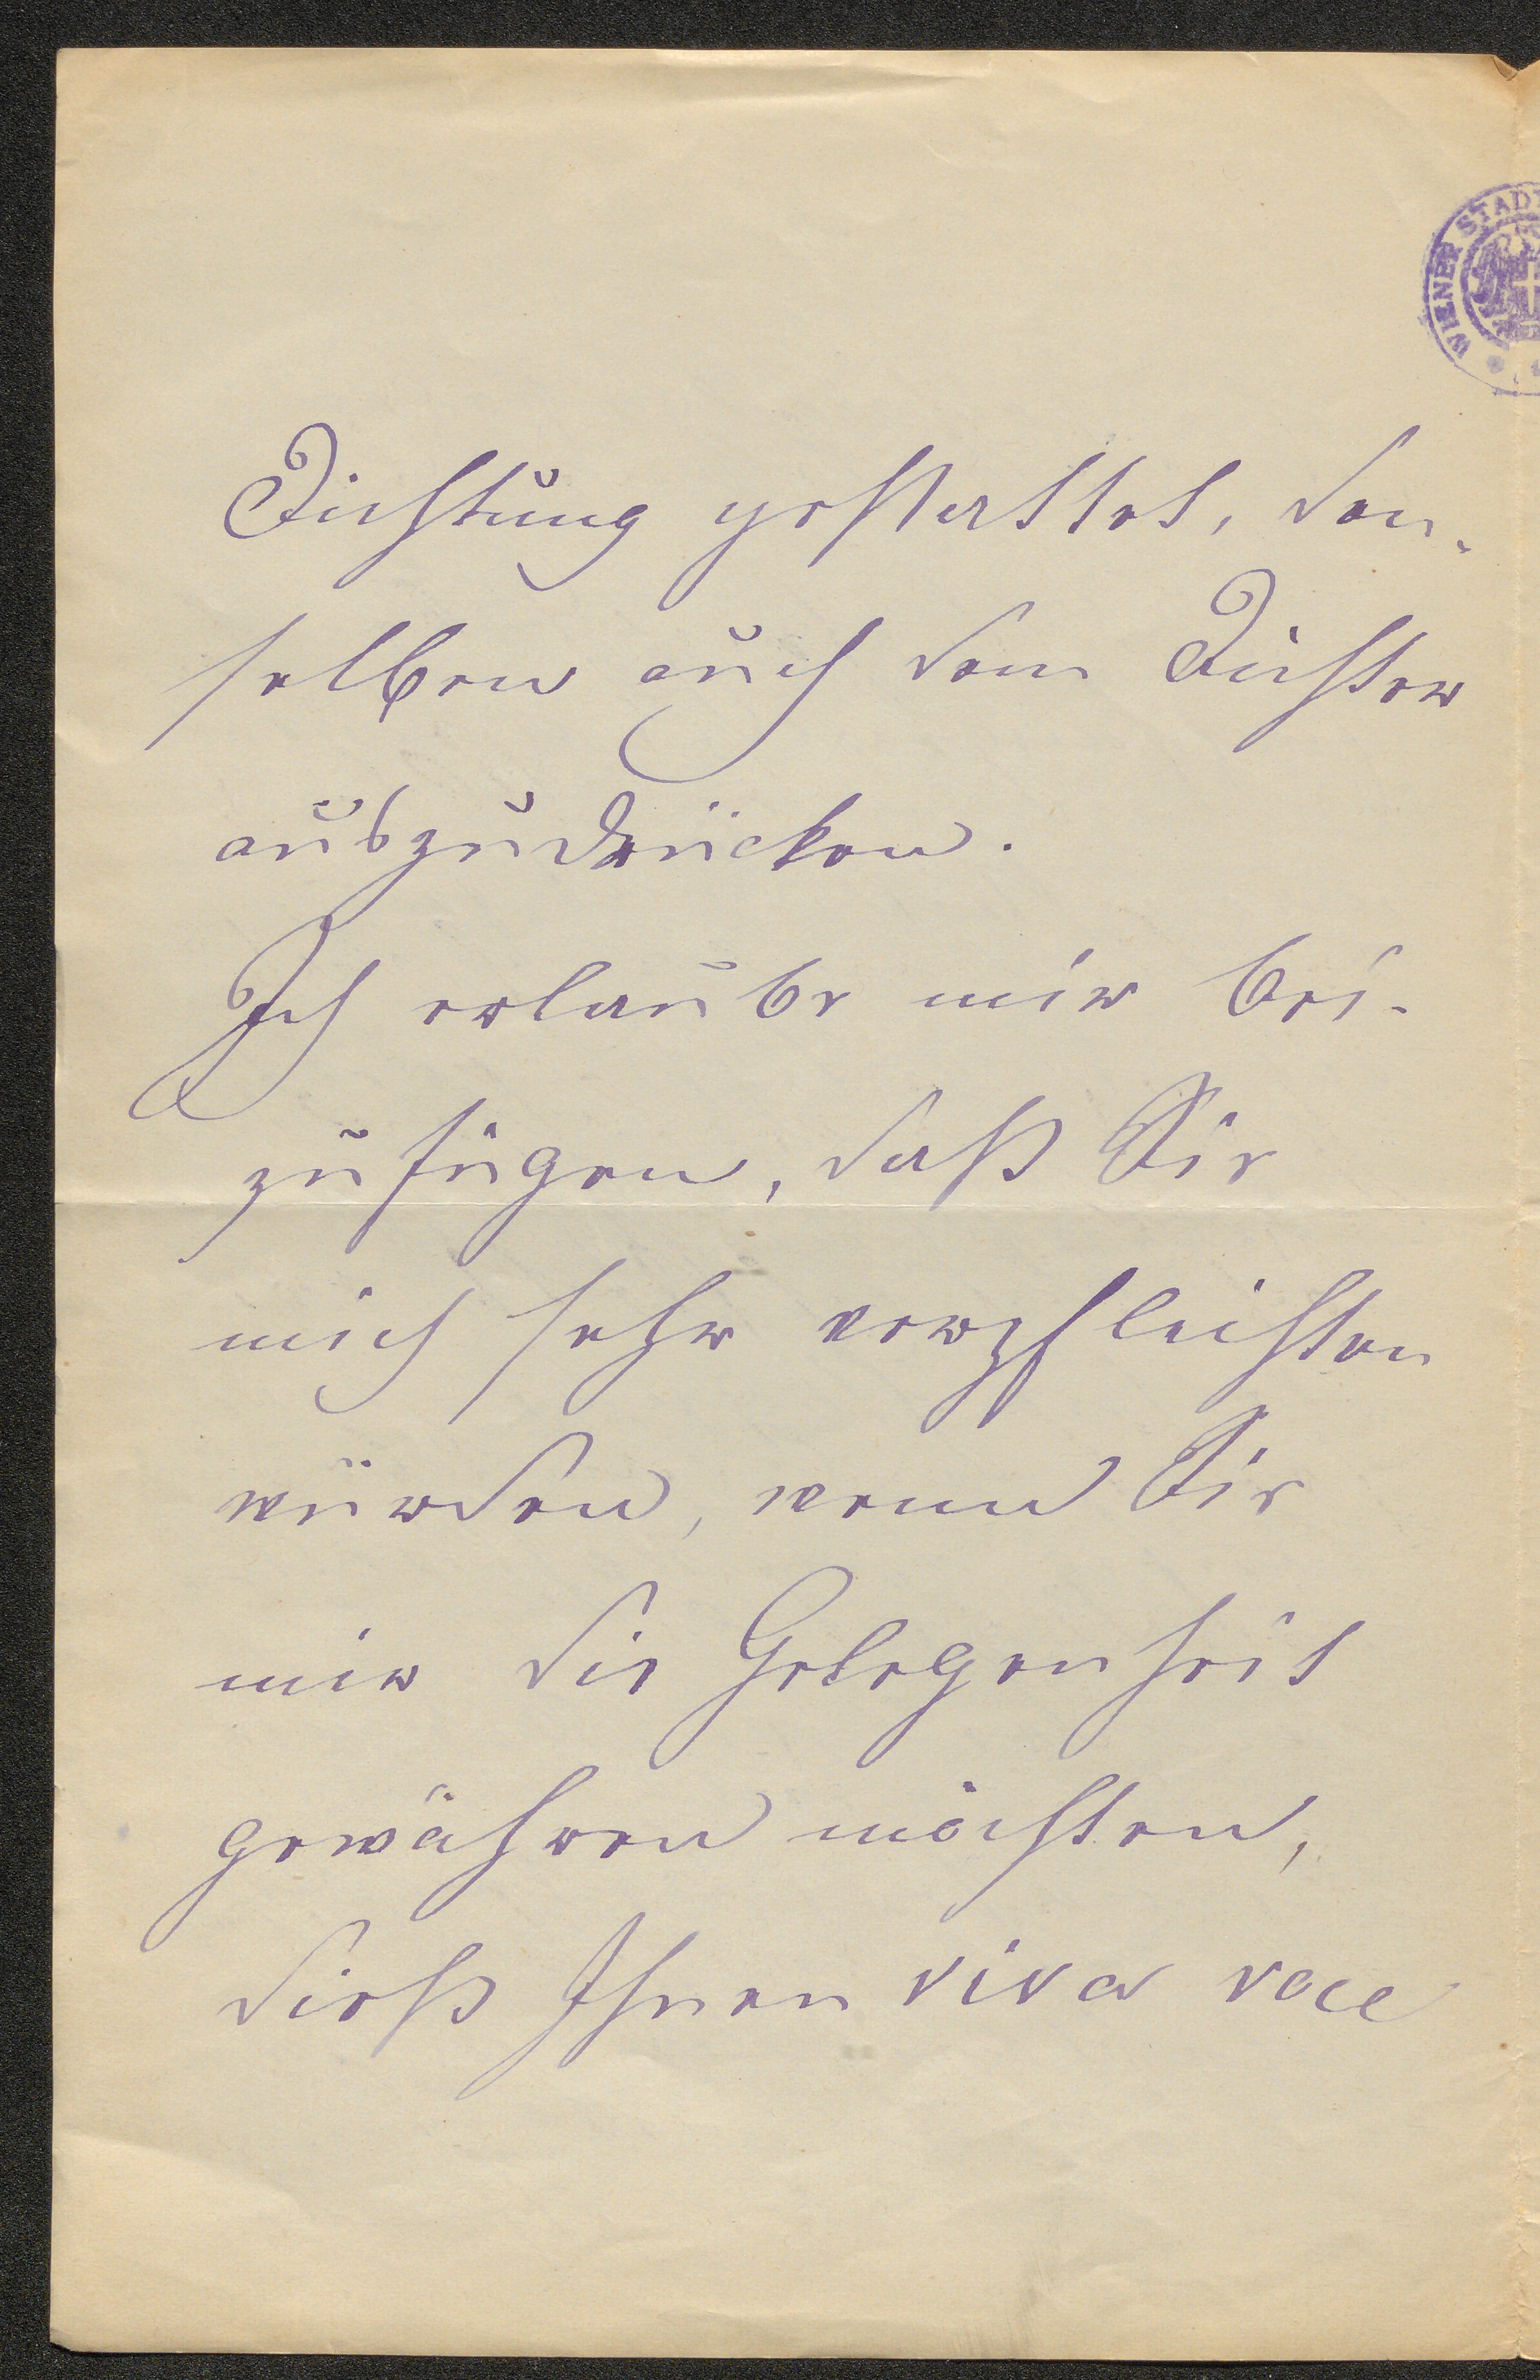 WIENER STADT
Dichtung gestattet, den-
selben auch dem Dichter
auszudrücken.
Ich erlaube mir bei-
zufügen, daß Sie
mich sehr verpflichten
würden, wenn Sie
mir die Gelegenheit
gewähren möchten,
dieß Ihnen viva voce